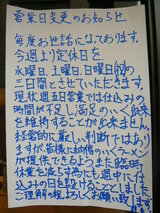 営業日変更のお知らせ
毎度お世話になっております。
今週より定休日を
水曜日、土曜日、日曜日(祝)の
三日間とさせていただきます。
現状週五日営業では仕込みの
時間が取れず、満足のいく品質
を維持することが出来ません。
経営的に厳しい判断ではあり
ますが皆様に納得のいくラーメン
が提供できるよう、また臨時
休業を減らす為にも週中に仕
込みの日を設けることとしました
ご理解の程よろしくお願い致します